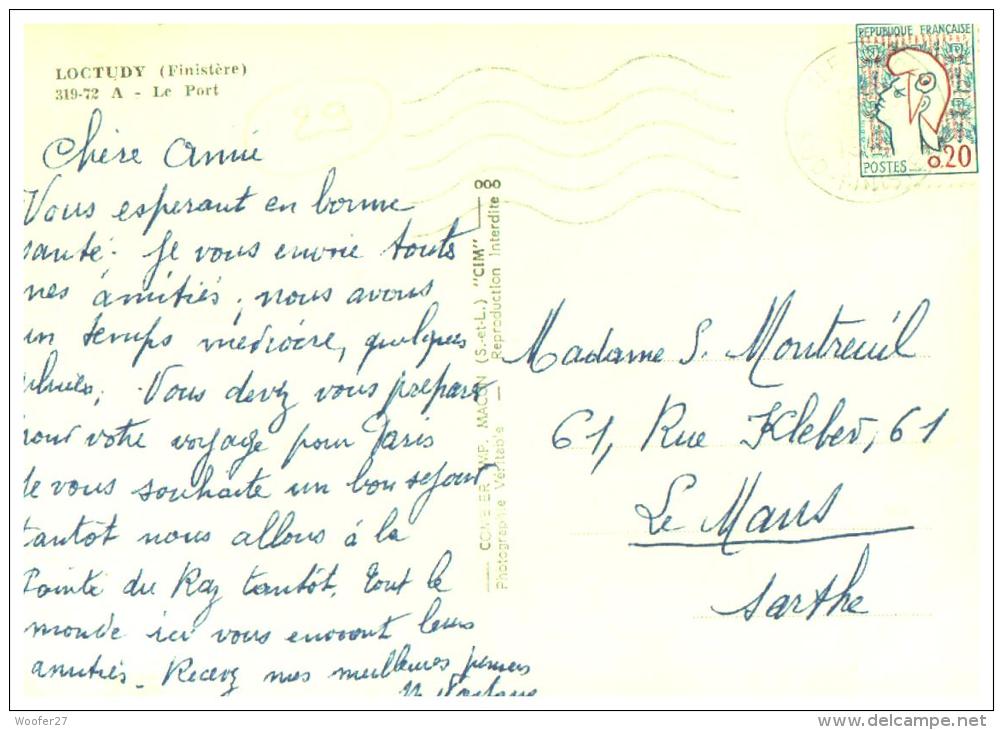 LOCTUDY (Finistère)
319-72 A - Le Port
29
REPUBLIQUE FRANÇAISE
POSTES
0.20
Chère Amie
Vous esperant en bonne
santé. Je vous envoie toutes
mes amitiés, nous avons
un temps médiocre, quelques
pluies, Vous devez vous préparer
pour votre voyage pour Paris
Je vous souhaite un bon sejour
tantot nous allons à la
Pointe du Raz tantôt. Tout le
monde ici vous envoient leurs
amitiés. Recevez mes meilleures pensées
COMBIER IMP. MACON (S.-et-L.) "CIM"
Photographie Véritable — Reproduction Interdite
000
Madame S. Montreuil
61, Rue Kleber, 61
Le Mans
Sarthe
Woofer27
delcampe.net